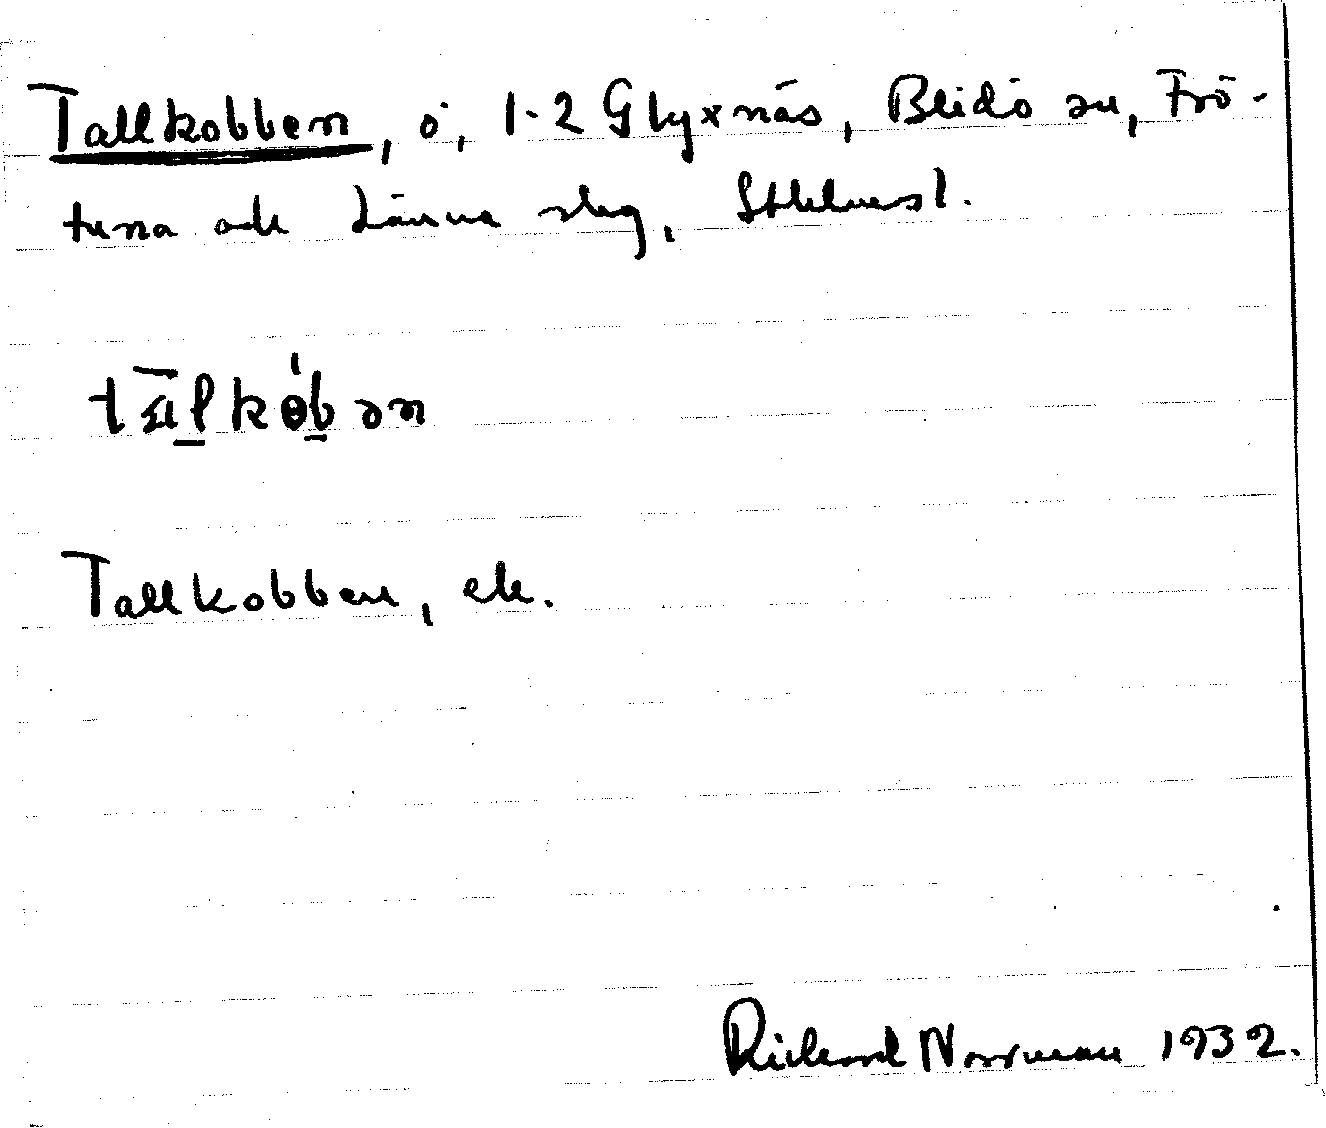 Tallkobben, ö, 1-2 Glyxnäs, Blidö sn, Frö-
tuna och Länna slag, Sthlms l.
tal̲kób̲ən
Tallkobben, ek.
Richard Norrman 1932.